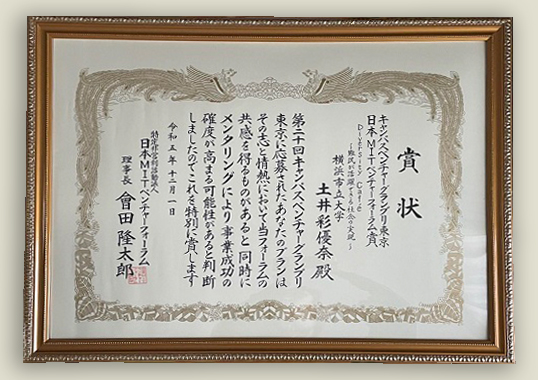 賞状
キャンパスベンチャーグランプリ東京
日本MITベンチャーフォーラム賞
Diversity Café
～難民が活躍できる社会の実現～
横浜市立大学
土井彩優奈 殿
第二十回キャンパスベンチャーグランプリ
東京に応募されたあなたのプランは
その志と情熱において当フォーラムの
共感を得るものがあると同時に
メンタリングにより事業成功の
確度が高まる可能性があると判断
しましたのでこれを特別に賞します
令和五年十二月一日
特定非営利活動法人
日本MITベンチャーフォーラム
理事長 會田隆太郎